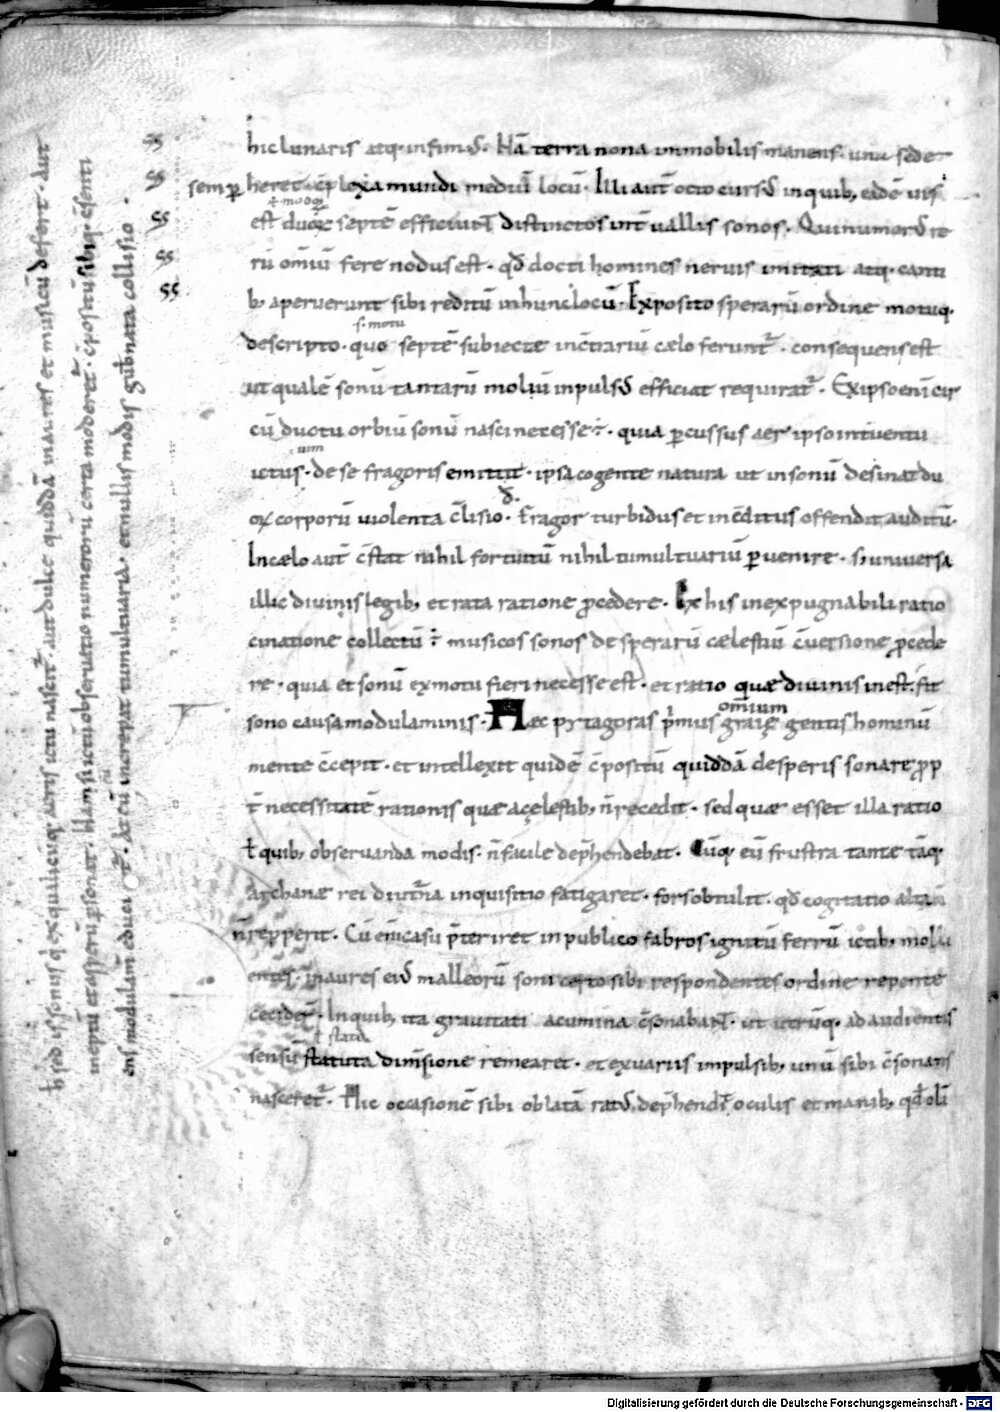 hic lunaris atq; infimꝰ. Nā terra nona immobilis manens. una sede
semꝑ heret. cōplexa mundi mediū locū. Illi aut̄ octo cursꝰ in quib; eadē uis
ł modoꝝ
est duoꝝ septē efficiunt̄ distinctos int̄uallis sonos. Qui numerꝰ re
rū om̄iū fere nodus est. qđ docti homines neruis imitati atq; canti
b; aperuerunt sibi reditū in hunc locū. Exposito sperarū ordine motuq;
s. motu
descripto. quo septē subiectæ in c̄trariū cælo ferunt᷑. consequens est
ut qualē sonū tantarū moliū inpulsꝰ efficiat requirat᷑. Ex ipso eni cir
cū ductu orbiū sonū nasci necesse ē. quia ꝑcussus aer ipso interuentu
uim
ictus. de se fragoris emittit. ipsa cogente natura ut in sonū desinat du
oꝝ corporū uiolenta c̄lisio. fragor turbidus et inc̄ditus offendit auditū.
In cælo aut̄ c̄stat nihil fortuitū nihil tumultuariū ꝑuenire. s; uniuersa
illic diuinis legib; et rata ratione ꝓcedere. Ex his inexpugnabili ratio
cinatione collectū ē musicos sonos de sperarū cælestiū c̄uersione ꝓcede
re. quia et sonū ex motu fieri necesse est. et ratio quæ diuinis inest. fit
omnium
sono causa modulaminis. Haec pytagoras p̄mus graię gentis hominū
mente c̄cepit. et intellexit quidē c̄positū quiddā de speris sonare ꝓp
t̄ necessitatē rationis quæ a cęlestib; n̄ recedit. sed quæ esset illa ratio
ł quib; obseruanda modis. n̄ facile dep̄hendebat. Cūq; eū frustra tantæ tāq;
archanæ rei diut̄na inquisitio fatigaret. fors obtulit. qđ cogitatio alta
n̄ repperit. Cū eni casu p̄teriret in publico fabros ignitū ferrū ictib; molli
entes. in aures eiꝰ malleorū soni certo sibi respondentes ordine repente
c̄cider̄. In quib; ita grauitati acumina c̄sonabant̄. ut utrūq; ad audientis
ł statā
sensū statuta dim̄sione remearet. et ex uariis impulsib; unū sibi c̄sonans
nasceret᷑. Hic occasionē sibi oblatā ratꝰ. dep̄hendit oculis et manib; qđ oli
sed is sonus q ex qualicūq; aeris ictu nascit᷑. aut dulce quiddā in aures et musicū defert. aut
ineptū et asperū ꝑsonat. Nam si ictū obseruatio numerorū certa moderet᷑. c̄positū sibiq; c̄senti
ens modulam̄ educit᷑. At cū increpat tumultuaria. et nullis modis gub̄nata collisio.